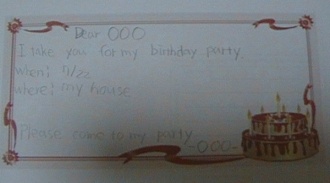 Dear OOO
I take you for my birthday party.
when: 7/22
where: my house
Please come to my party
-OOO-